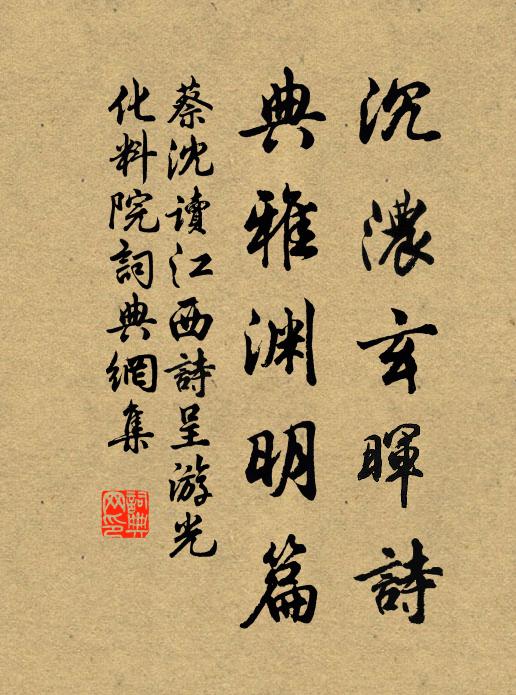 沉濃玄暉詩
典雅渊明篇
蔡沈读江西詩呈游光
化料院詞典網集
詞典网印